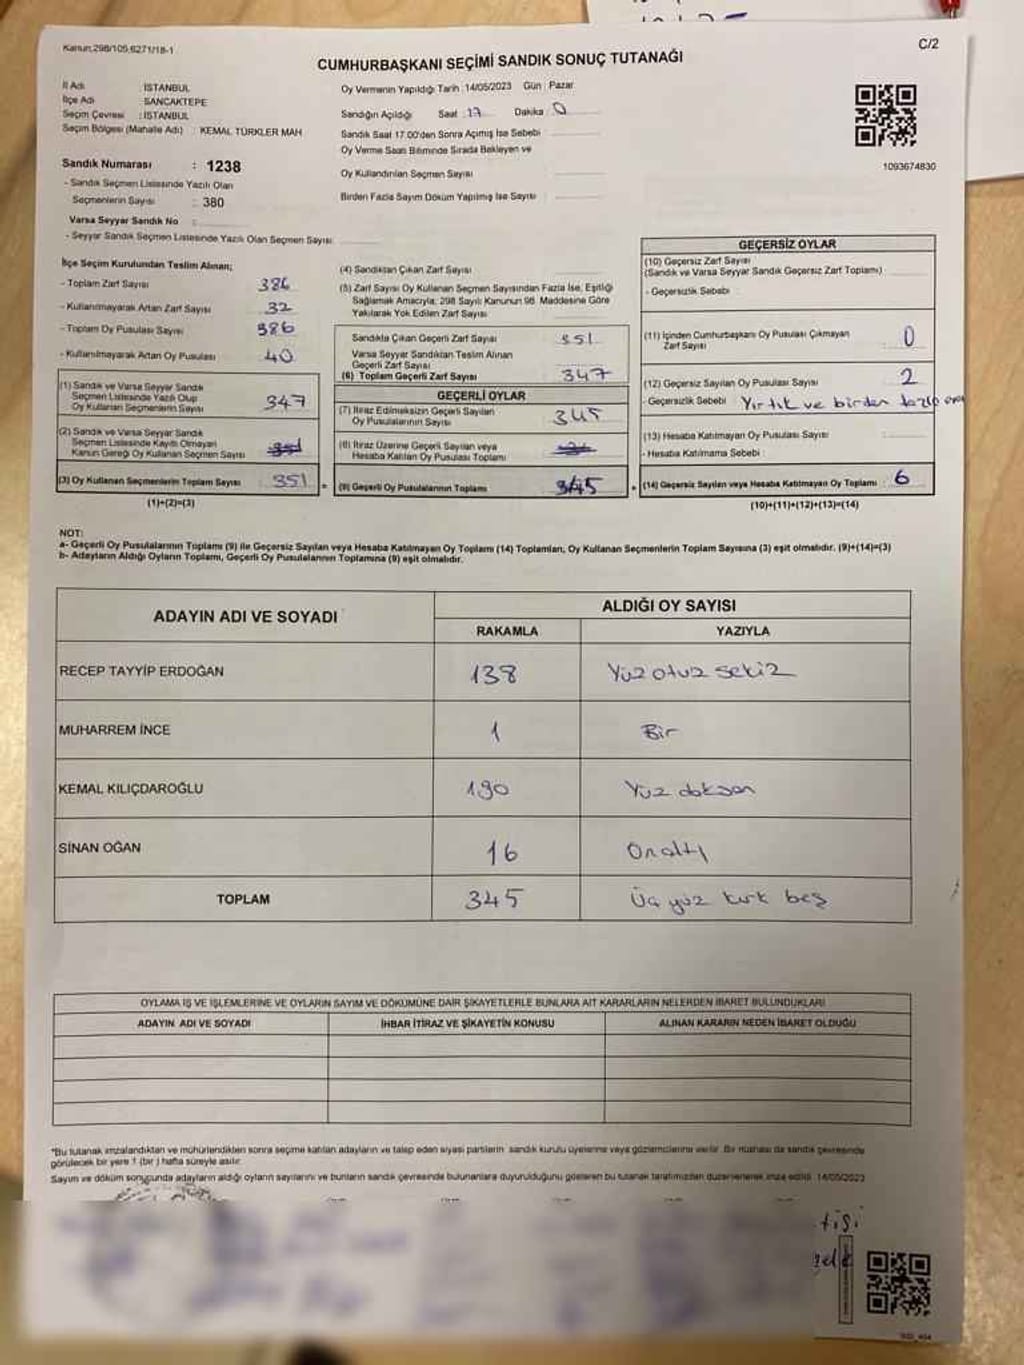 Kanun;298/105,6271/18-1
C/2
CUMHURBAŞKANI SEÇİMİ SANDIK SONUÇ TUTANAĞI
İl Adı : İSTANBUL
İlçe Adı : SANCAKTEPE
Seçim Çevresi : İSTANBUL
Seçim Bölgesi (Mahalle Adı) : KEMAL TÜRKLER MAH
Sandık Numarası : 1238
- Sandık Seçmen Listesinde Yazılı Olan
Seçmenlerin Sayısı : 380
Varsa Seyyar Sandık No :
- Seyyar Sandık Seçmen Listesinde Yazılı Olan Seçmen Sayısı:
Oy Vermenin Yapıldığı Tarih :14/05/2023 Gün : Pazar
Sandığın Açıldığı Saat : 17 Dakika : 0
Sandık Saat 17:00'den Sonra Açmış İse Sebebi :
Oy Verme Saati Bitiminde Sırada Bekleyen ve
Oy Kullandırılan Seçmen Sayısı :
Birden Fazla Sayım Döküm Yapılmış İse Sayısı :
1093674830
İlçe Seçim Kurulundan Teslim Alınan;
- Toplam Zarf Sayısı : 386
- Kullanılmayarak Artan Zarf Sayısı : 32
- Toplam Oy Pusulası Sayısı : 386
- Kullanılmayarak Artan Oy Pusulası : 40
(1) Sandık ve Varsa Seyyar Sandık
Seçmen Listesinde Yazılı Olup
Oy Kullanan Seçmenlerin Sayısı : 347
(2) Sandık ve Varsa Seyyar Sandık
Seçmen Listesinde Kayıtlı Olmayan
Kanun Gereği Oy Kullanan Seçmen Sayısı
(3) Oy Kullanan Seçmenlerin Toplam Sayısı : 351 =
(1)+(2)=(3)
(4) Sandıktan Çıkan Zarf Sayısı :
(5) Zarf Sayısı Oy Kullanan Seçmen Sayısından Fazla İse, Eşitliği
Sağlamak Amacıyla; 298 Sayılı Kanunun 98. Maddesine Göre
Yakılarak Yok Edilen Zarf Sayısı :
Sandıkta Çıkan Geçerli Zarf Sayısı : 351
Varsa Seyyar Sandıktan Teslim Alınan
Geçerli Zarf Sayısı :
(6) Toplam Geçerli Zarf Sayısı : 347
GEÇERLİ OYLAR
(7) İtiraz Edilmeksizin Geçerli Sayılan
Oy Pusulalarının Sayısı : 345
(8) İtiraz Üzerine Geçerli Sayılan veya
Hesaba Katılan Oy Pusulası Toplamı
(9) Geçerli Oy Pusulalarının Toplamı : 345 +
GEÇERSİZ OYLAR
(10) Geçersiz Zarf Sayısı
(Sandık ve Varsa Seyyar Sandık Geçersiz Zarf Toplamı) :
- Geçersizlik Sebebi :
(11) İçinden Cumhurbaşkanı Oy Pusulası Çıkmayan
Zarf Sayısı : 0
(12) Geçersiz Sayılan Oy Pusulası Sayısı : 2
- Geçersizlik Sebebi : Yırtık ve birden fazla
(13) Hesaba Katılmayan Oy Pusulası Sayısı :
- Hesaba Katılmama Sebebi :
(14) Geçersiz Sayılan veya Hesaba Katılmayan Oy Toplamı : 6
(10)+(11)+(12)+(13)=(14)
NOT:
a- Geçerli Oy Pusulalarının Toplamı (9) ile Geçersiz Sayılan veya Hesaba Katılmayan Oy Toplamı (14) Toplamları, Oy Kullanan Seçmenlerin Toplam Sayısına (3) eşit olmalıdır. (9)+(14)=(3)
b- Adayların Aldığı Oyların Toplamı, Geçerli Oy Pusulalarının Toplamına (9) eşit olmalıdır.
ADAYIN ADI VE SOYADI
ALDIĞI OY SAYISI
RAKAMLA YAZIYLA
RECEP TAYYİP ERDOĞAN 138 Yüz otuz sekiz
MUHARREM İNCE 1 Bir
KEMAL KILIÇDAROĞLU 190 Yüz doksan
SİNAN OĞAN 16 Onaltı
TOPLAM 345 Üç yüz kırk beş
OYLAMA İŞ VE İŞLEMLERİNE VE OYLARIN SAYIM VE DÖKÜMÜNE DAİR ŞİKAYETLERLE BUNLARA AİT KARARLARIN NELERDEN İBARET BULUNDUKLARI
ADAYIN ADI VE SOYADI İHBAR İTİRAZ VE ŞİKAYETİN KONUSU ALINAN KARARIN NEDEN İBARET OLDUĞU
*Bu tutanak imzalandıktan ve mühürlendikten sonra seçime katılan adayların ve talep eden siyasi partilerin sandık kurulu üyelerine veya gözlemcilerine verilir. Bir nüshası da sandık çevresinde
görülecek bir yere 1 (bir ) hafta süreyle asılır.
Sayım ve döküm sonucunda adayların aldığı oyların sayılarını ve bunların sandık çevresinde bulunanlara duyurulduğunu gösteren bu tutanak tarafımızdan düzenlenerek imza edildi. 14/05/2023
tisi